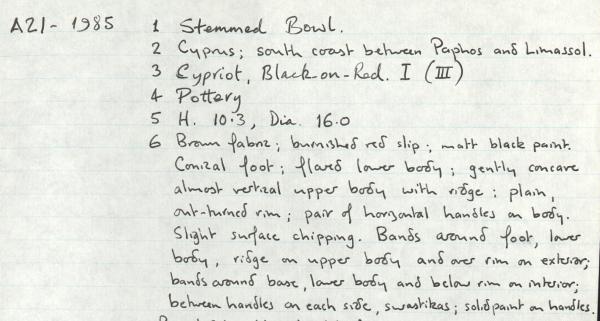 A21-1985 1 Stemmed Bowl.
2 Cyprus; south coast between Paphos and Limassol.
3 Cypriot, Black-on-Red. I (III)
4 Pottery
5 H. 10.3, Dia. 16.0
6 Brown fabric; burnished red slip; matt black paint.
Conical foot; flared lower body; gently concave
almost vertical upper body with ridge; plain,
out-turned rim; pair of horizontal handles on body.
Slight surface chipping. Bands around foot, lower
body, ridge on upper body and over rim on exterior;
bands around base, lower body and below rim on interior;
between handles on each side, swastikas; solid paint on handles.